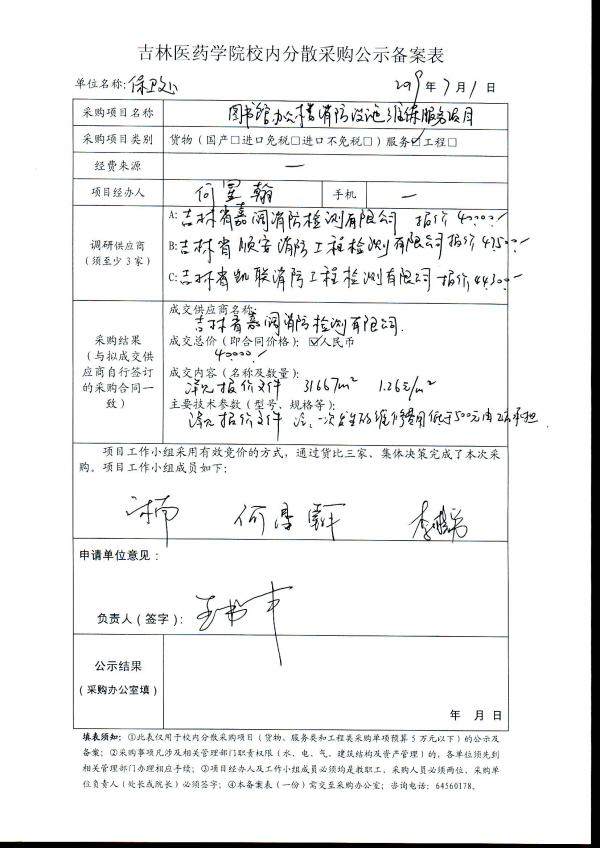 吉林医药学院校内分散采购公示备案表
单位名称:保卫处 2019年7月1日
采购项目名称 图书馆办公楼消防设施维保服务项目
采购项目类别 货物（国产□进口免税□进口不免税□）服务☑工程□
经费来源 一
项目经办人 手机 一
调研供应商
（须至少3家）
A:吉林省嘉润消防检测有限公司 报价40000./
B:吉林省顺安消防工程检测有限公司报价47500./
C:吉林省凯联消防工程检测有限公司报价44300./
采购结果
（与拟成交供
应商自行签订
的采购合同一
致）
成交供应商名称:
吉林省嘉润消防检测有限公司.
成交总价（即合同价格）: ☑人民币
40000./
成交内容（名称及数量）:
详见报价文件 31667m² 1.26元/m²
主要技术参数（型号、规格等）:
详见报价文件 注:一次发生的维修费用低于500元由乙方承担.
项目工作小组采用有效竞价的方式，通过货比三家、集体决策完成了本次采
购。项目工作小组成员如下:
申请单位意见:
负责人（签字）:
公示结果
（采购办公室填）
年 月 日
填表须知：①此表仅用于校内分散采购项目（货物、服务类和工程类采购单项预算5万元以下）的公示及
备案；②采购事项凡涉及相关管理部门职责权限（水、电、气、建筑结构及资产管理）的，各单位须先到
相关管理部门办理相应手续；③项目经办人及工作小组成员必须均是教职工、采购人员必须两位、采购单
位负责人（处长或院长）必须签字；④本备案表（一份）需交至采购办公室；咨询电话：64560178。